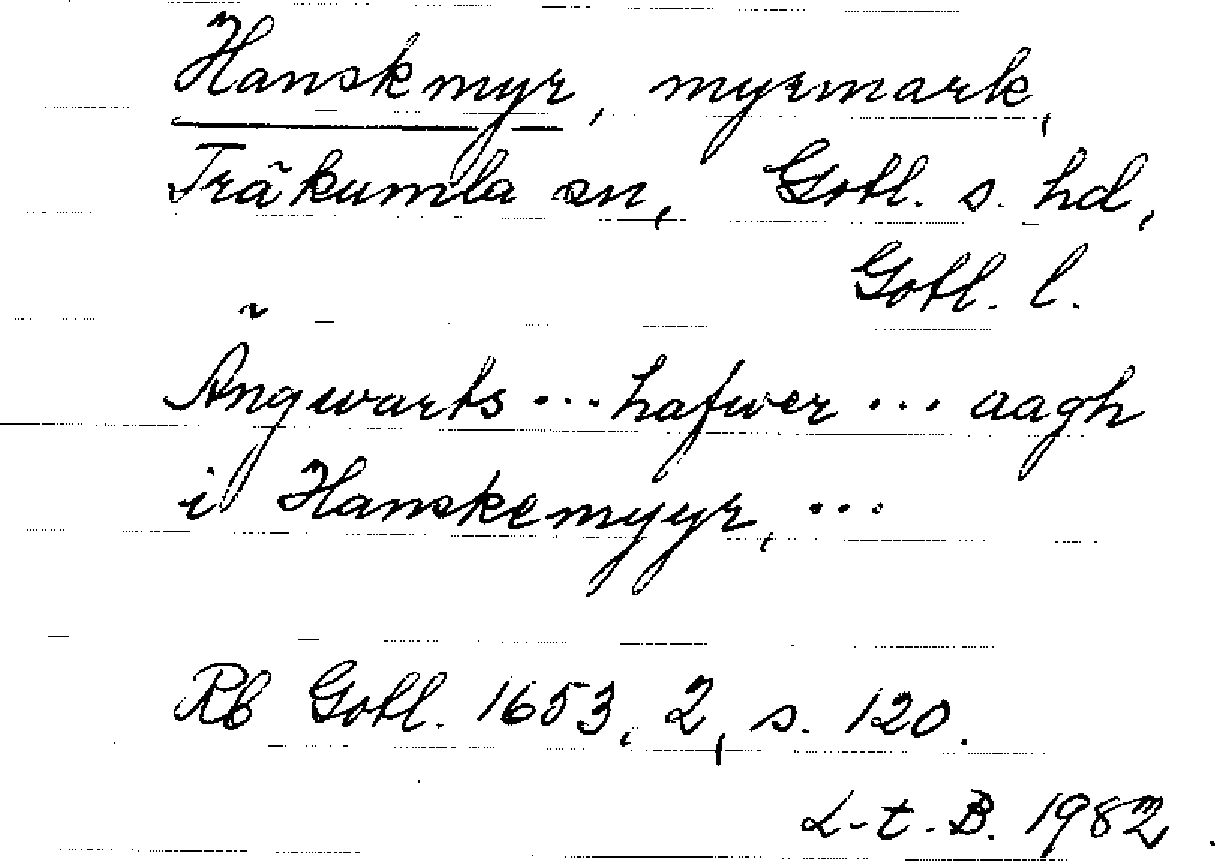 Hanskmyr, myrmark,
Träkumla sn, Gotl. s. hd,
Gotl. l.
Ängwarts ... hafwer ... aagh
i Hanskemyyr, ...
Rb Gotl. 1653, 2, s. 120.
L-t. B. 1982.